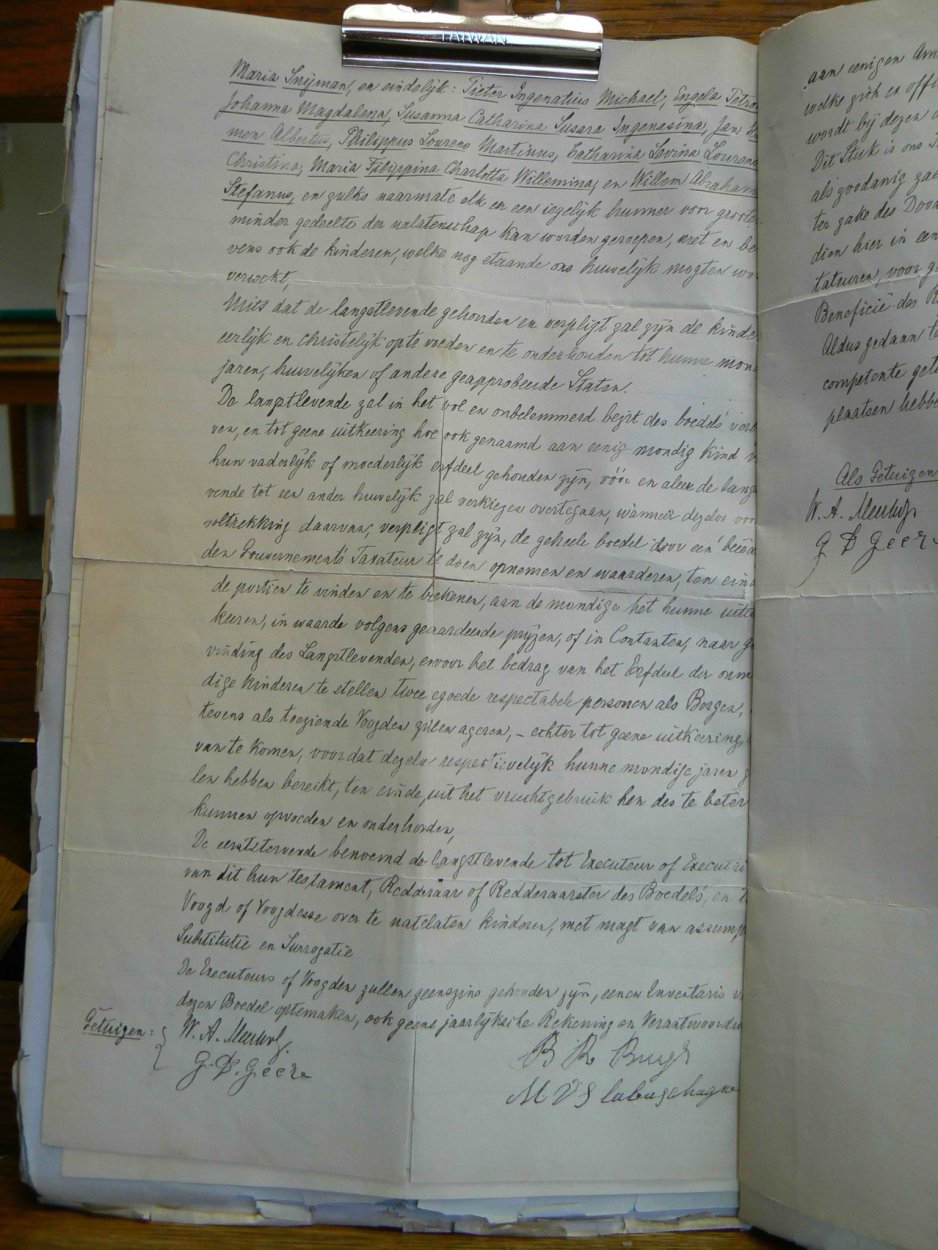 TAIWAN
Maria Snijman, en eindelijk: Pieter Ingenatius Michael, Engela Petro
Johanna Magdalena, Susanna Catharina Susara Ingenasina, Jan
men Albertus, Philippus Lourens Martinus, Catharina Levina Lourens
Christina, Maria Filippina Charlotta Willemina, en Willem Abraham
Stefanus, en zulks naarmate elk en een iegelijk hunner voor groote
minder gedeelte der nalatenschap kan worden geroepen, met en be
vens ook de kinderen, welke nog staande ons huwelijk mogten wo
verwekt,
Mits dat de langstlevende gehouden en verpligt zal zijn de kinde
eerlijk en christelijk opte voeden en te onderhouden tot hunne mon
jaren, huwelijken of andere geapprobeerde Staten.
De langstlevende zal in het vol en onbelemmerd bezit des boedels verb
ven, en tot geene uitkeering hoe ook genaamd aan eenig mondig kind v
hun vaderlijk of moederlijk erfdeel gehouden zijn, vóór en aleer de lang
vende tot een ander huwelijk zal verkiezen overtegaan, wanneer dezelve voor
voltrekking daarvan, verpligt zal zijn, de geheele boedel door een beëed
den Gouvernements Taxateur te doen opnemen en waarderen, ten eind
de portien te vinden en te berekenen, aan de mondige het hunne uitte
keeren, in waarde volgens gewaardeerde prijzen, of in Contanten, naar g
vinding des Langstlevenden, en voor het bedrag van het Erfdeel der onm
dige kinderen te stellen twee goede respectabele personen als Borgen,
tevens als toeziende Voogden zullen ageren, – echter tot geene uitkeering,
van te komen, voordat dezelve respectievelijk hunne mondige jaren z
len hebben bereikt, ten einde, uit het vruchtgebruik hen des te beter
kunnen opvoeden en onderhouden,
De eerststervende benoemd de langstlevende tot Executeur of Executri
van dit hun testament, Redderaar of Redderaarster des Boedels, en t
Voogd of Voogdesse over te natelaten kinderen, met magt van assump
Substitutie en Surrogatie
De Executeurs of Voogden zullen geenszins gehouden zijn, eenen Inventaris v
dezen Boedel optemaken, ook geene jaarlijksche Rekening en Verantwoordin
Getuigen:
G. D. Geere
B R Buys
M D S labuschagne
aan eenigen
welke zich en offi
wordt bij dezen
Dit Stuk is ons
als goodanig zal
ter zake des Doo
dien hier in een
tateuren, voor g
Beneficie des
Aldus gedaan te
competente getu
plaatsen hebbe
Als Getuigen
G D Geere